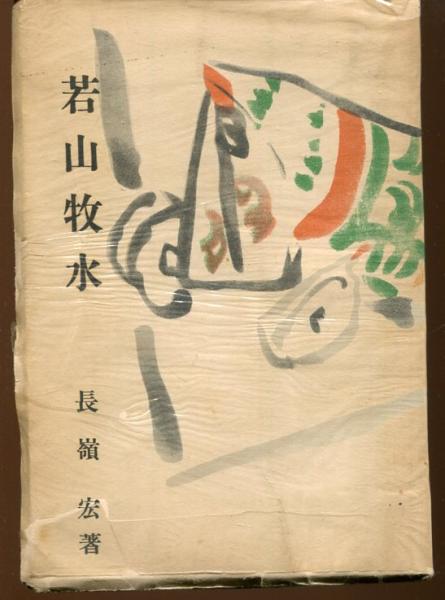 若山牧水
長嶺宏著